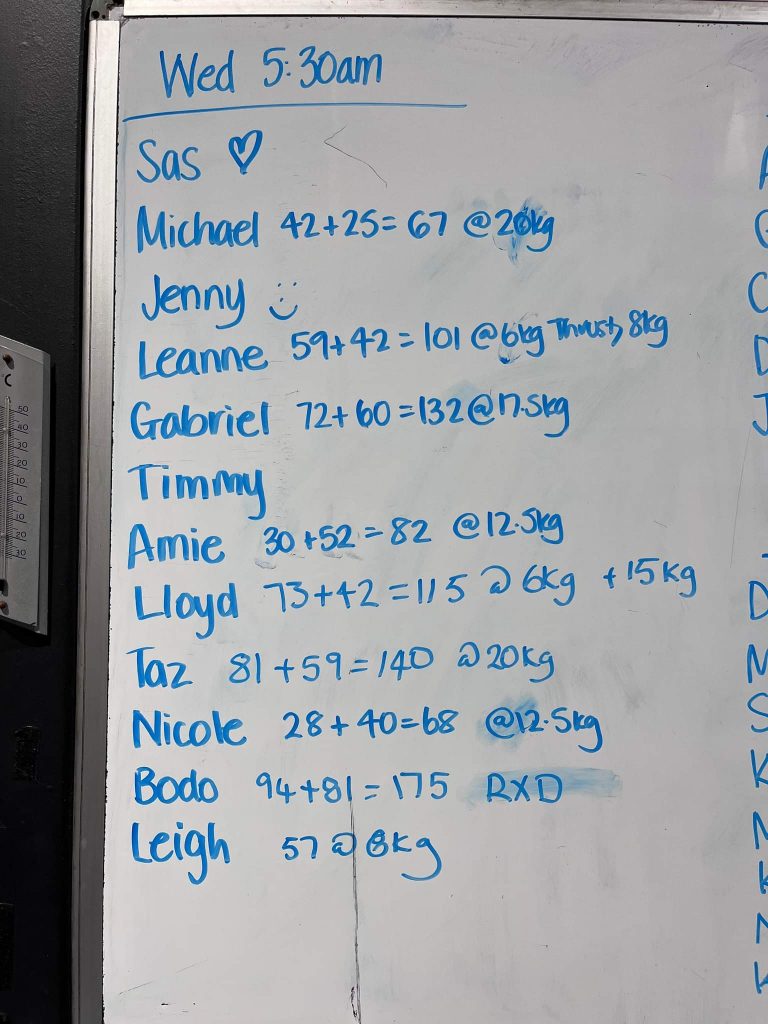 Wed 5:30am
Sas ♡
Michael 42+25= 67 @20kg
Jenny
Leanne 59+42 = 101 @6kg Thrust, 8kg
Gabriel 72+60 =132@17.5kg
Timmy
Amie 30+52 = 82 @12.5kg
Lloyd 73+42 =115 @ 6kg +15kg
Taz 81+59=140 @20kg
Nicole 28+40=68 @12.5kg
Bodo 94+81=175 RXD
Leigh 57 @ 8kg
C
50
40
30
20
10
0
10
20
30